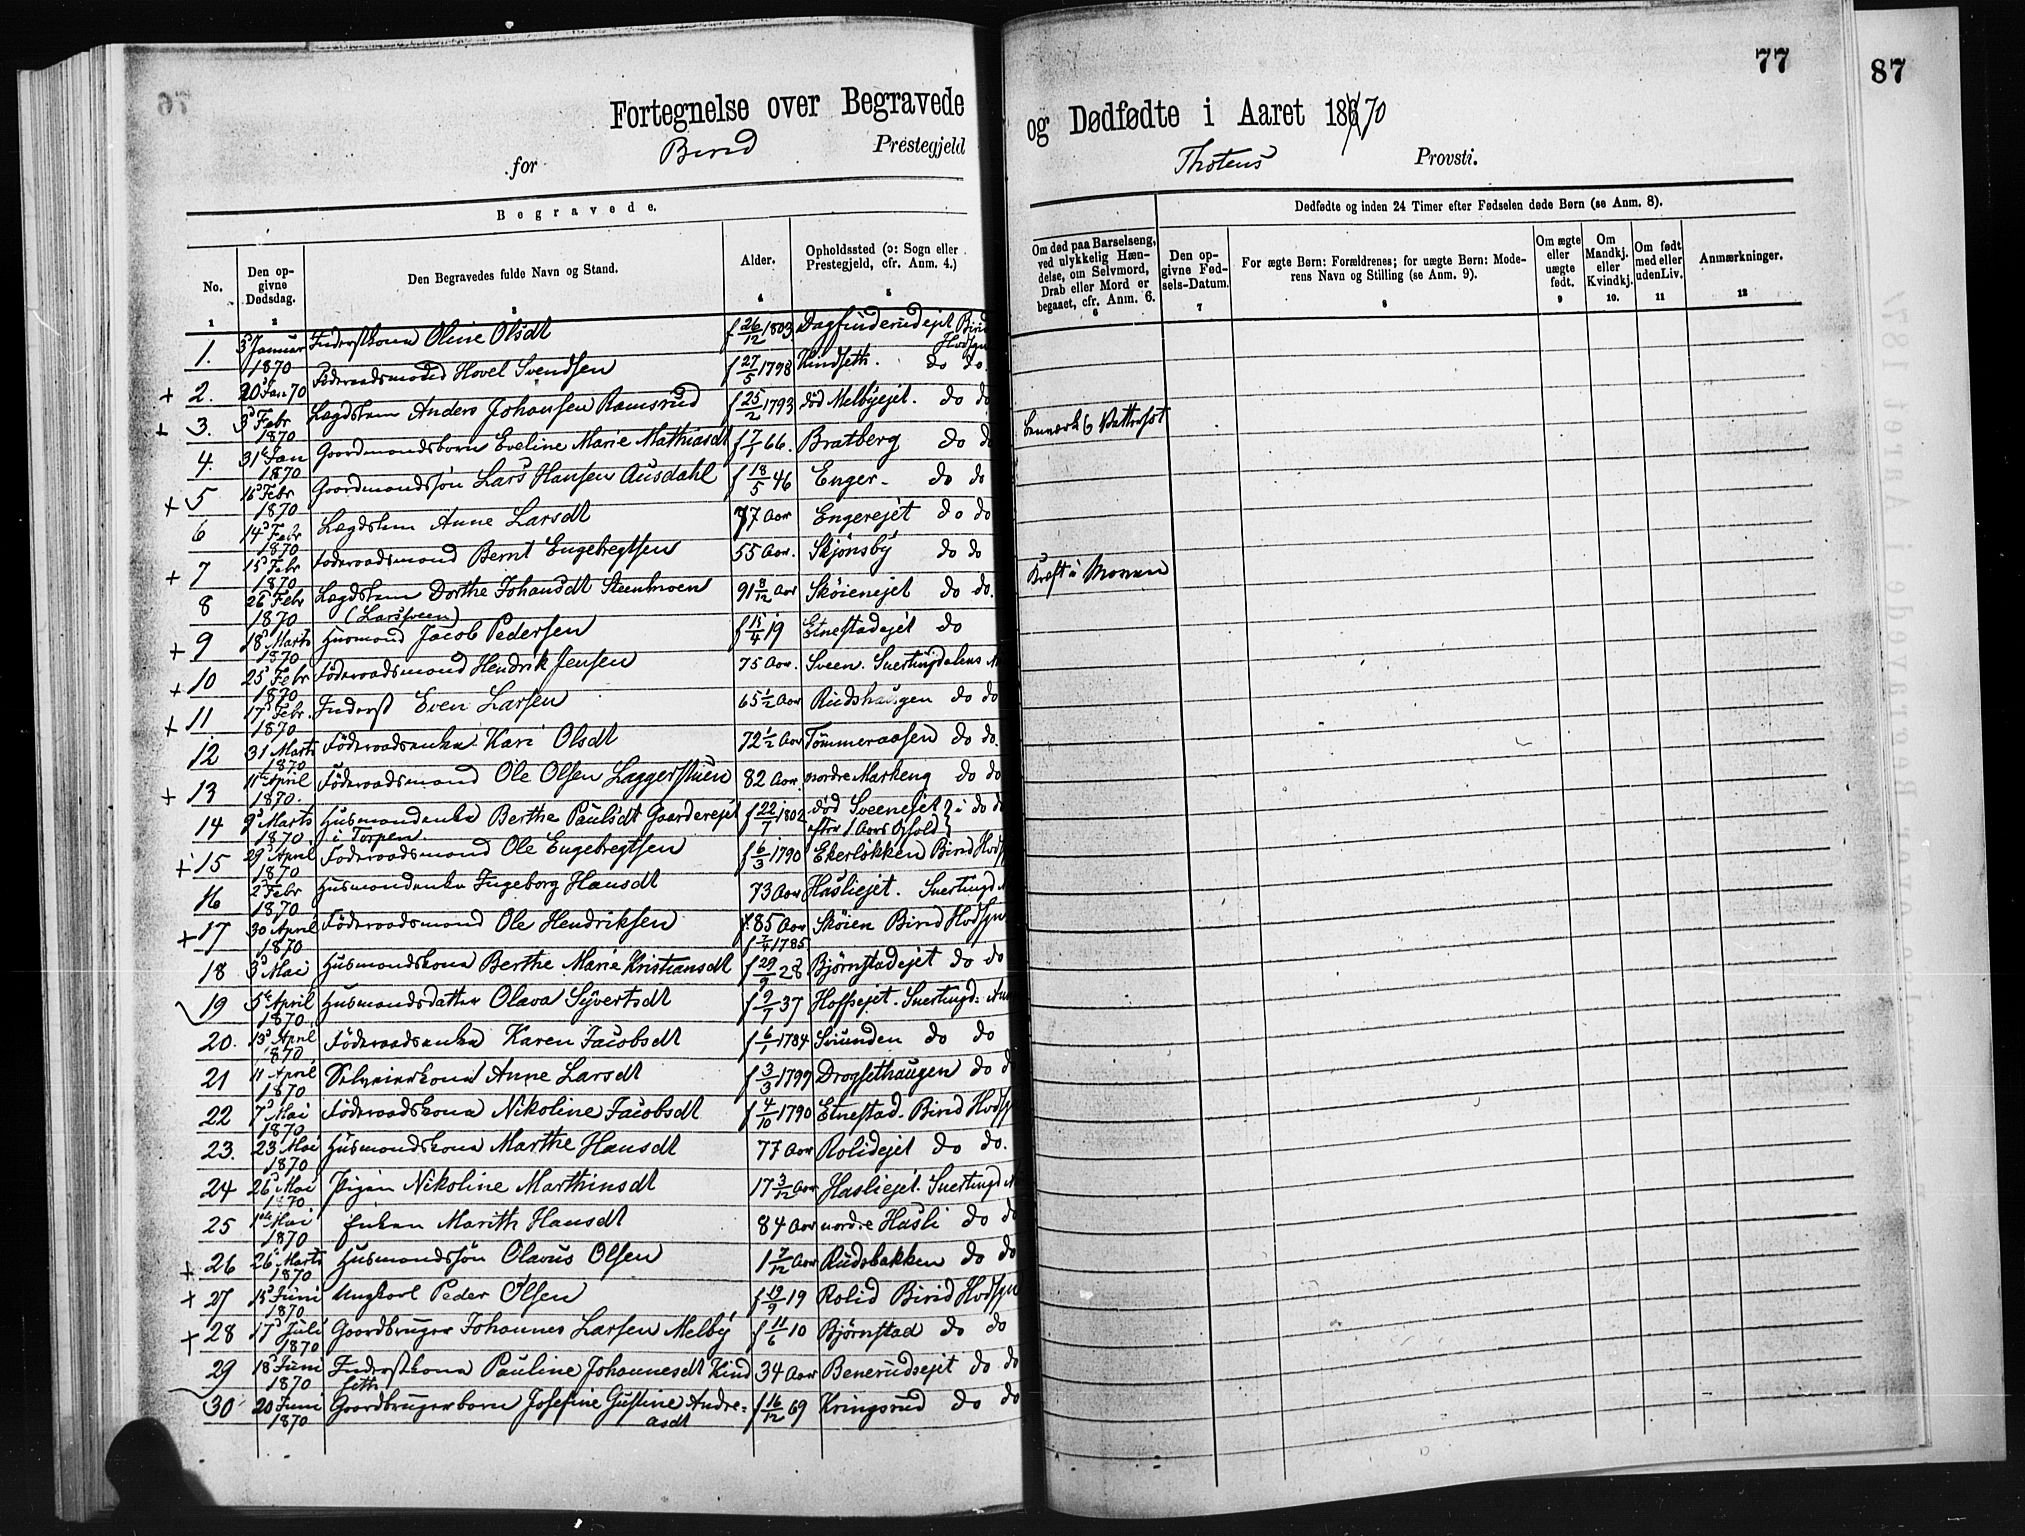 77
87
Fortegnelse over Begravede
og Dødfødte i Aaret 18670
for Birid Prestegjeld
Thotens Provsti.
Begravede.
Dødfødte og inden 24 Timer efter Fødselen døde Børn (se Anm. 8).
No. Den opgivne Dødsdag. Den Begravedes fulde Navn og Stand. Alder. Opholdssted (ɔ: Sogn eller Prestegjeld, cfr. Anm. 4.)
Om død paa Barselseng, ved ulykkelig Hændelse, om Selvmord, Drab eller Mord er begaaet, cfr. Anm. 6. Den opgivne Fødsels-Datum. For ægte Børn: Forældrenes; for uægte Børn: Moderens Navn og Stilling (se Anm. 9). Om ægte eller uægte født. Om Mandkj. eller Kvindkj. Om født med eller uden Liv. Anmærkninger.
1 2 3 4 5
6 7 8 9 10. 11 12
1. 3 Januar 1870 Inderstkona Oline Olsdt f 26/12 1803 Dagfinderudejet Birid Hvdsgn
+ 2. 20 Jan 70 Föderaadsmand Hovel Svendsen f 27/5 1798 Kindseth. do do
+ 3. 3 Febr 1870 Lægdslem Anders Johansen Ramsrud f 25/2 1793 död Melbyejet. do do
4. 31 Jan 1870 Gaardmandsbarn Eveline Marie Mathiasdt f 7/1 66. Bratberg do do
+ 5 16 Febr 1870 Gaardmandssön Lars Hansen Ausdahl f 18/5 46 Enger do do
6 14 Febr 1870 Lægdslem Anne Larsdt 77 Aar Engerejet do do
+ 7 15 Febr 1870 Föderaadsmand Bernt Engebregtsen 55 Aar. Skjönsby do do
Kræft i Maven
8 26 Febr 1870 Lægdslem Dorthe Johansdt Steenmoen (Larsveen) 91 8/12 Aar Sköienejet do do.
+ 9 18 Marts 1870 Husmand Jacob Pedersen f 15/4 19 Etnestadejet do
+ 10 25 Febr 1870 Föderaadsmand Hendrik Jensen 75 Aar. Sveen. Snertingdalens
+ 11 17 Febr. 1870 Inderst Even Larsen 65 1/2 Aar Rudshaugen do do
12 31 Marts 1870 Föderaadsenke Kari Olsdt 72 1/2 Aar Tömmeraasen do do.
+ 13 11 April 1870. Föderaadsmand Ole Olsen Laggerstuen 82 Aar nordre Markeng do do
14 9 Marts 1870 Husmandenke Berthe Paulsdt Gaarderejet i Torpen f 22/7 1802 död Sveenejet efter 1 Aars Ophold i do do
+ 15 29 April 1870 Föderaadsmand Ole Engebregtsen f 6/3 1790 Ekerlökken Birid Hvds
16 2 Febr 1870 Husmandenke Ingeborg Hansdt 73 Aar Hasliejet. Snertingd
+ 17 30 April 1870 Föderaadsmand Ole Hendriksen 85 Aar f 7/4 1785 Sköien Birid Hvdsgn
18 3 Mai Husmandskona Berthe Marie Kristiansdt f 29/9 28 Björnstadejet do do
19 5 April 1870 Husmandsdatter Olava Syvertsdt f 2/7 37 Hoffsejet. Snertingd: An
20. 13 April 1870 Föderaadsenke Karen Jacobsdt f 6/1 1784 Sviunden do do
21 11 April 1870 Selveierkona Anne Larsdt f 3/3 1799 Drogsethaugen do do
22 7 Mai 1870 Föderaadskona Nikoline Jacobsdt f 4/10 1790 Etnestad. Birid Hvdsgn
23. 23 Mai 1870 Husmandskona Marthe Hansdt 77 Aar Rolidejet do do.
24 26 Mai 1870 Pigen Nikoline Marthinsdt 17 3/12 Aar Hasliejet. Snertingd
25 1ste Mai 1870 Enken Marith Hansdt 84 Aar nordre Hasli do do
+ 26 26 Marts 1870 Husmandssön Olavus Olsen 1 7/12 Aar Rudsbakken do do
+ 27 15 Juni 1870 Ungkarl Peder Olsen f 19/9 19 Rolid Birid Hvdsgn
+ 28 17 Juli 1870 Gaardbruger Johannes Larsen Melby f 11/6 10 Björnstad do do
29 18 Juni 1870 Inderstkona Pauline Johannesdt Kindseth 34 Aar Benerudsejet do do
30 20 Juni 1870 Gaardbrugerbarn Josefine Gustine Andreasdt f 16/12 69 Kringsrud do do